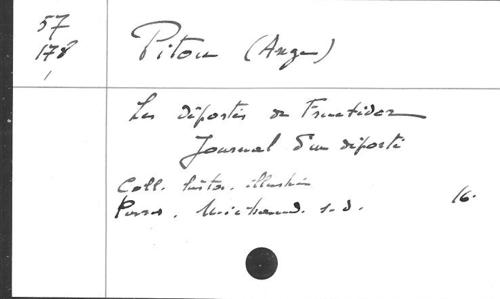 57
178
1
Pitou (Ange)
Les déportés de Fructidor
Journal d'un déporté
Coll. histor. illustrée
Paris. Michaud. s.d. 16.